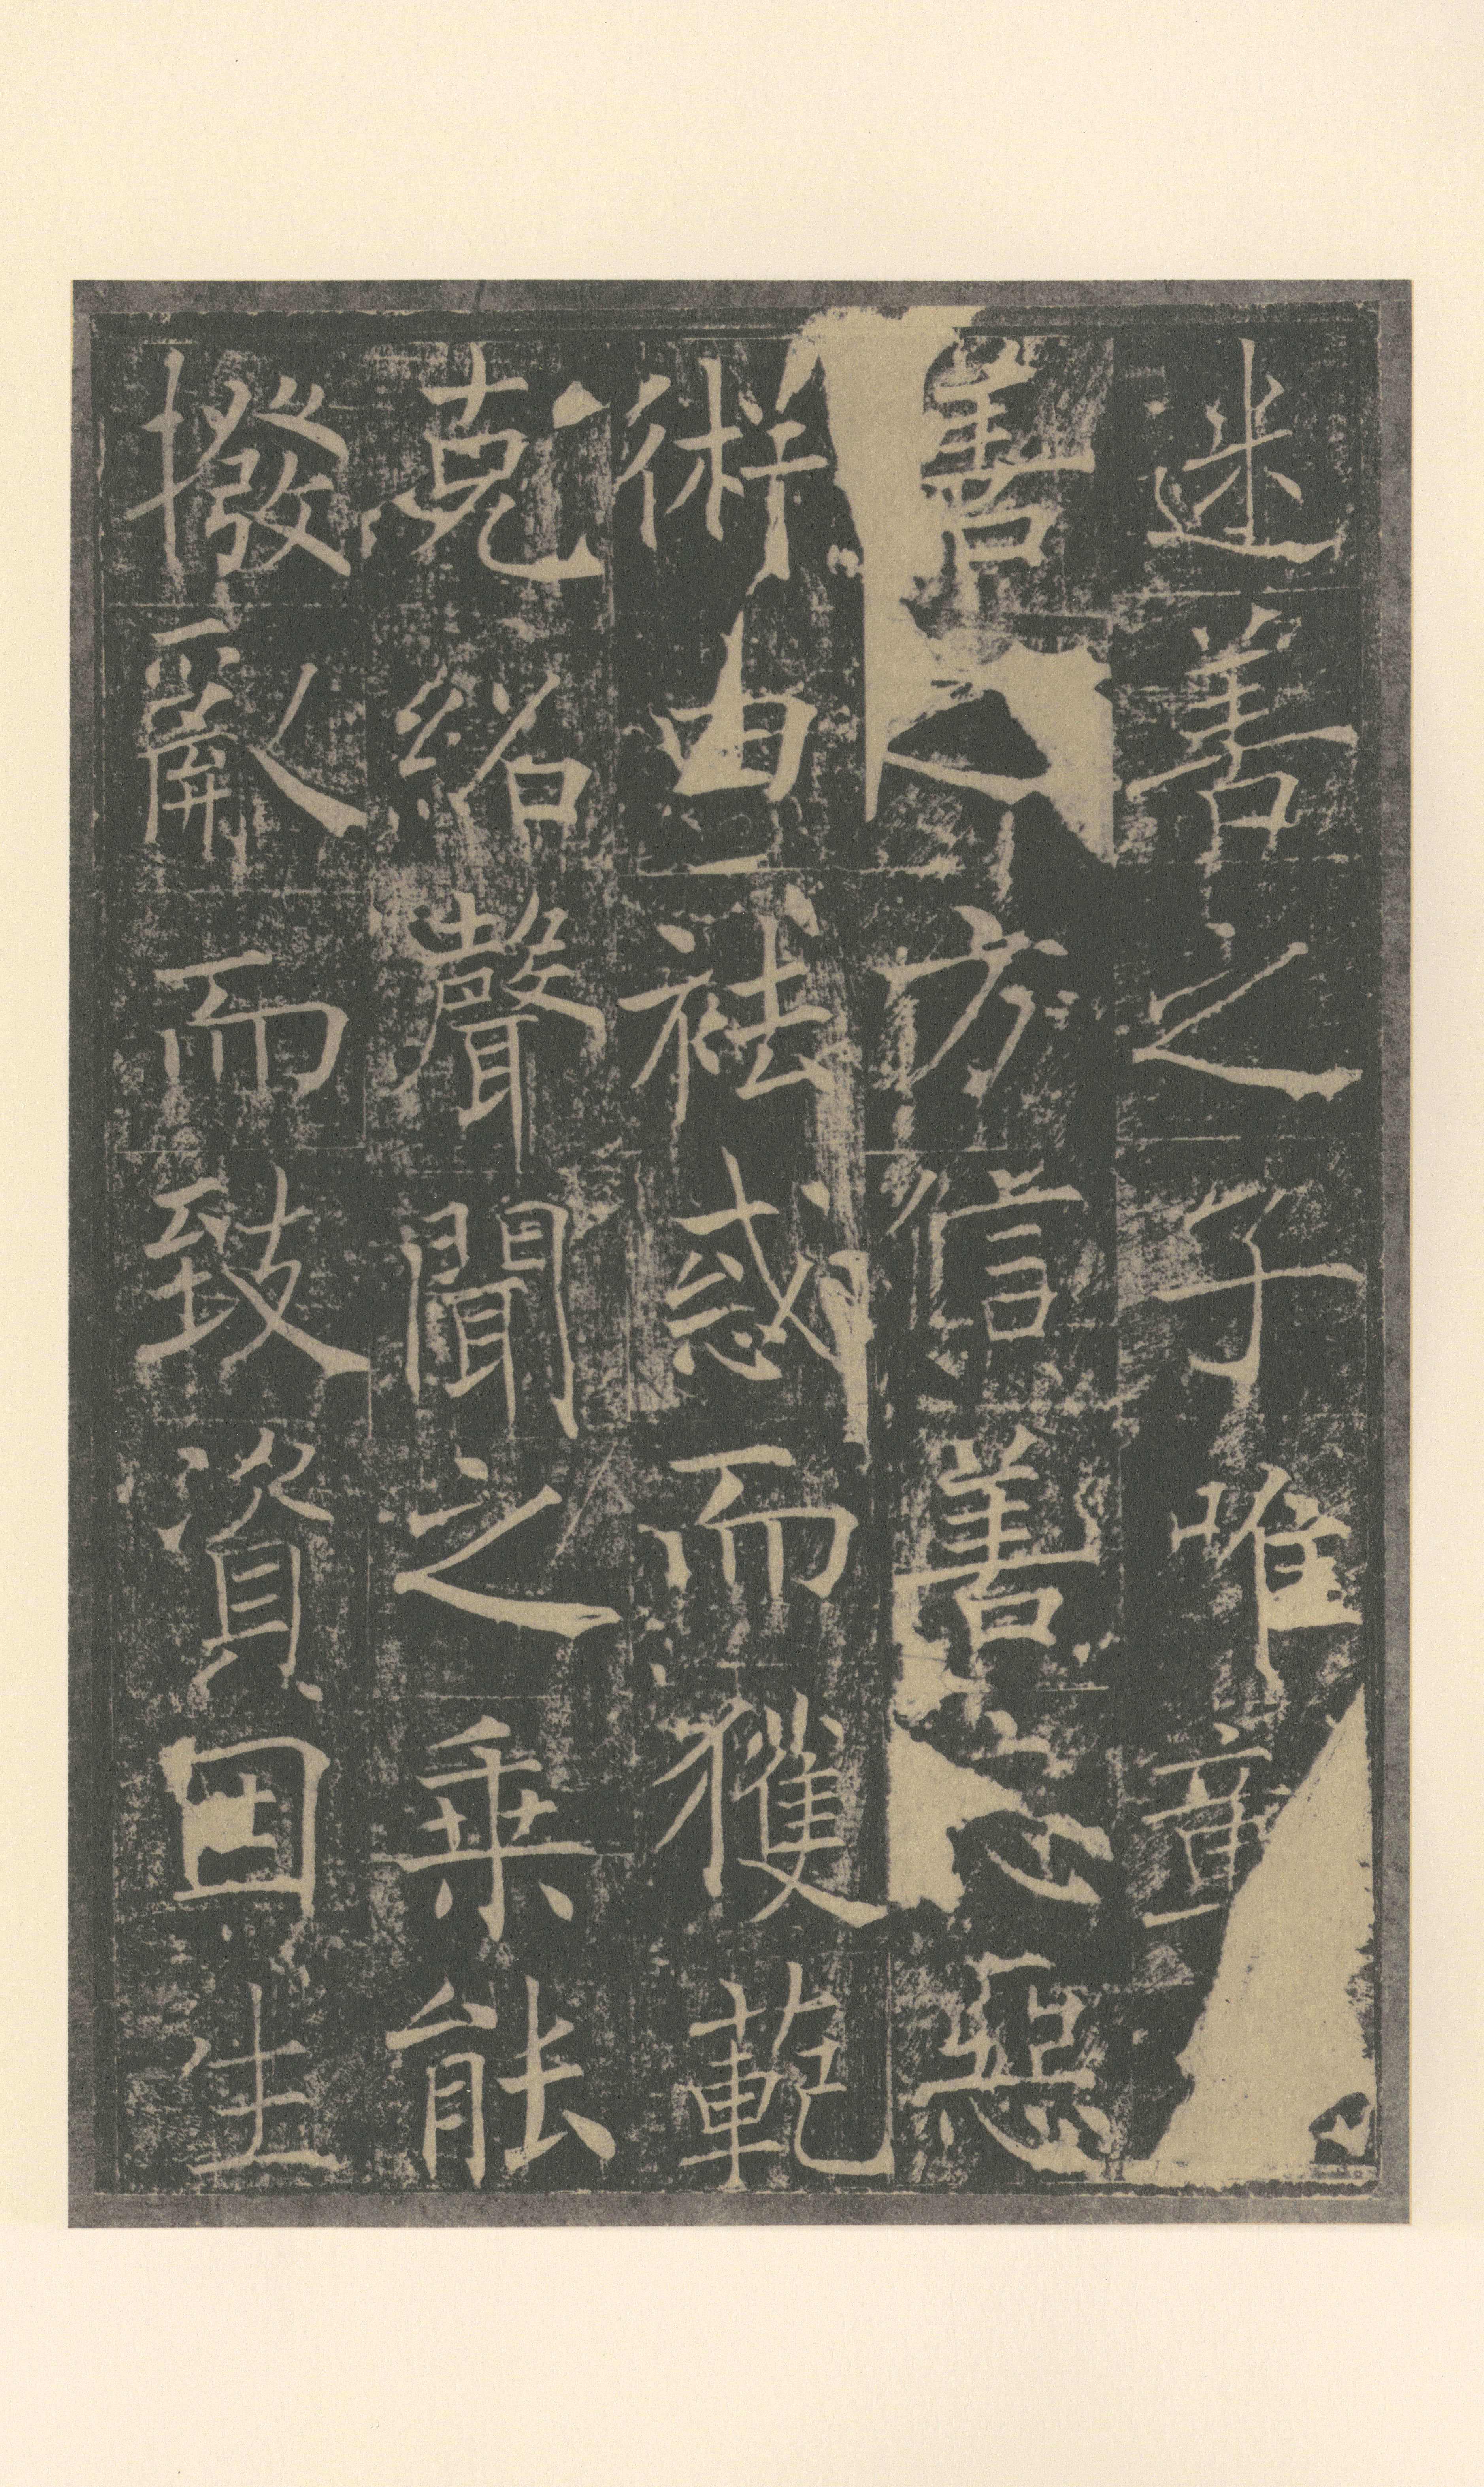 迷善之子唯童
善方信善惡
術由祛惑而獲範
克紹聲聞之乗能
撥亂而致資因生